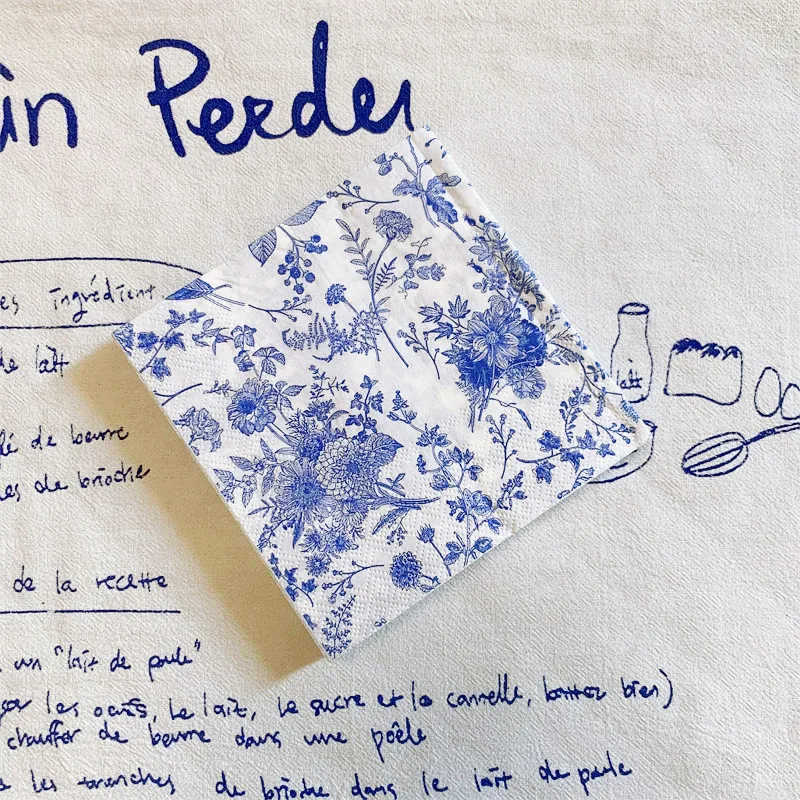 in Perdu
es ingrédient
de lait
lé de beurre
es de brioche
lait
de la recette
un "lait de poule"
les oeufs, le lait, le sucre et la cannelle, battez bien)
chauffer de beurre dans une poêle
les tranches de brioche dans le lait de poule